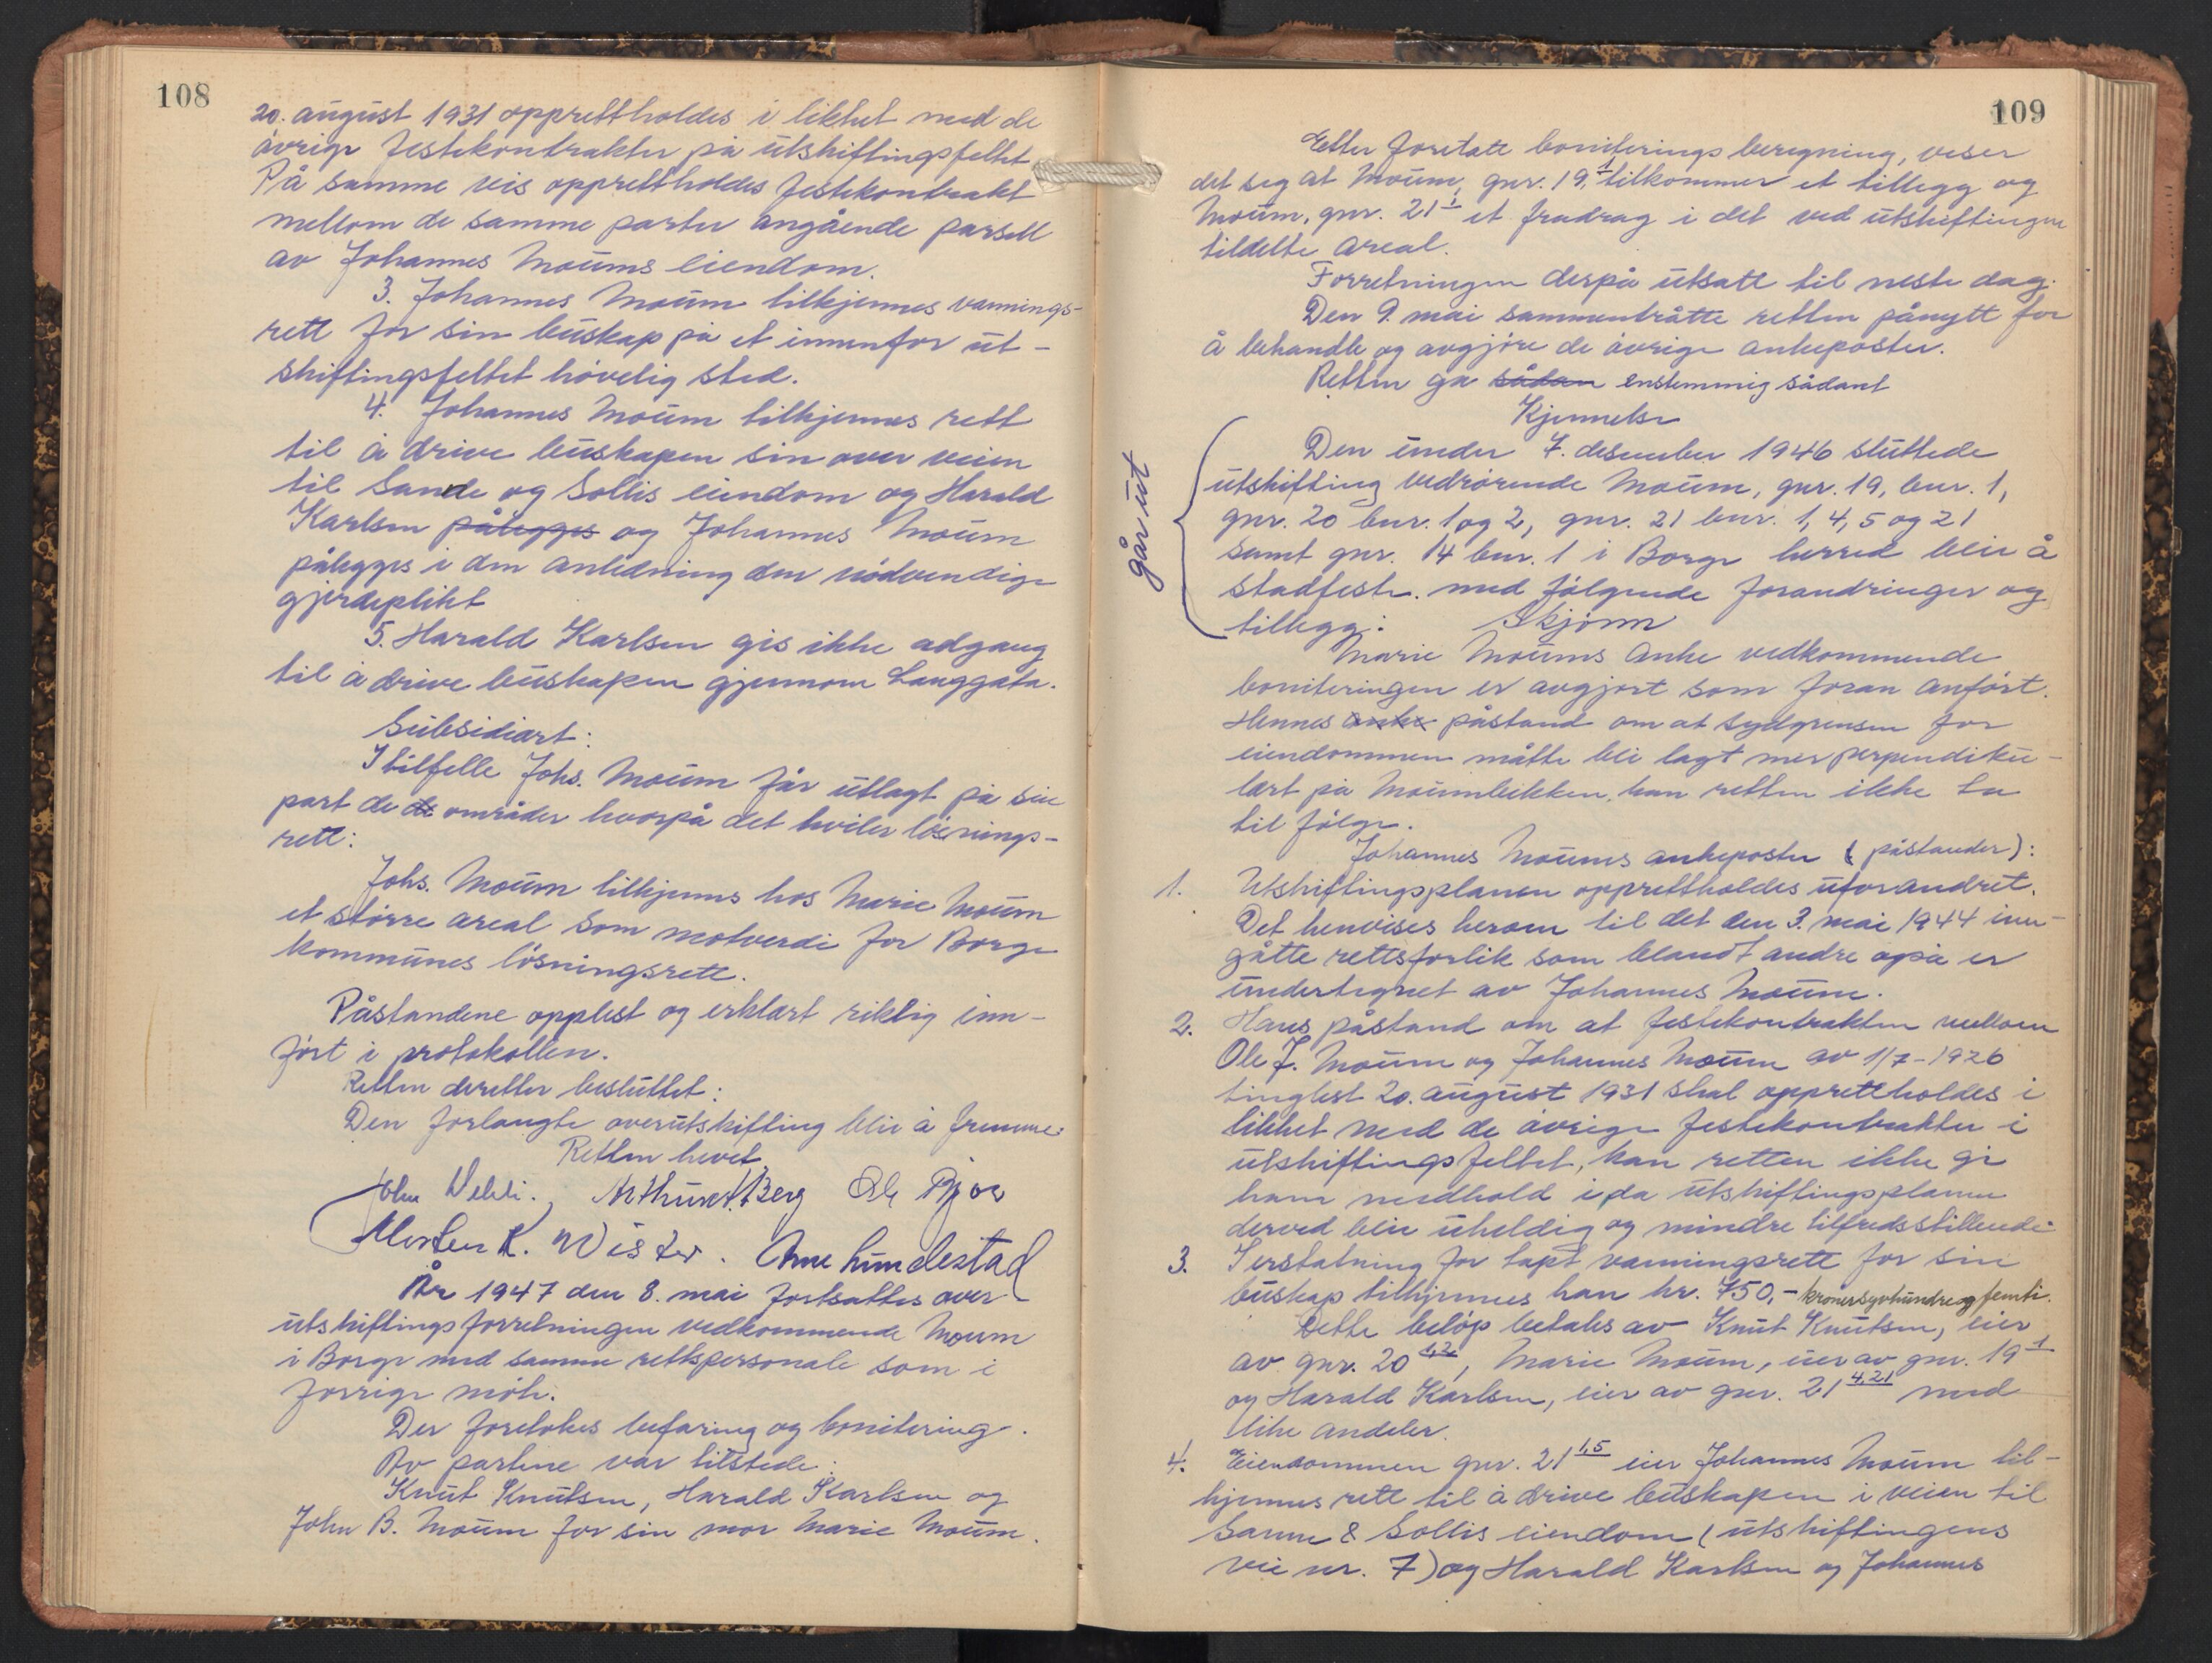 108
20. august 1931 opprettholdes i likhet med de
øvrige festekontrakter på utskiftingsfeltet
På samme vis opprettholdes festekontrakt
mellom de samme parter angående parsell
av Johannes Moums eiendom.
3. Johannes Moum tilkjennes vannings-
rett for sin buskap på et innenfor ut-
skiftingsfeltet høvelig sted.
4. Johannes Moum tilkjennes rett
til å drive buskapen sin over veien
til Sande og Sollis eiendom og Harald
Karlsen pålegges og Johannes Moum
pålegges i den anledning den nødvendige
gjerdeplikt
5. Harald Karlsen gis ikke adgang
til å drive buskapen gjennom Langgata.
Subsidiært:
I tilfelle Johs. Moum får utlagt på sin
part de de områder hvorpå det hviler løsnings-
rett:
Johs. Moum tilkjennes hos Marie Moum
et større areal som motverdi for Borge
kommunes løsningsrett.
Påstandene opplest og erklært riktig inn-
ført i protokollen.
Retten deretter besluttet:
Den forlangte overutskifting blir å fremme.
Retten hevet
John Arthur Berg Ole Bjør
Morten K. Wister. Arne Hundestad
År 1947 den 8. mai fortsattes over-
utskiftingsforretningen vedkommende Moum
i Borge med samme rettspersonale som i
forrige møte.
Der foretokes befaring og bonitering.
Av partene var tilstede:
Knut Knutsen, Harald Karlsen og
John B. Moum for sin mor Marie Moum.
109
Etter foretatt boniteringsberegning, viser
det seg at Moum, gnr. 19,1 tilkommer et tillegg og
Moum, gnr. 21 1 et fradrag i det ved utskiftingen
tildelte areal.
Forretningen derpå utsatt til neste dag.
Den 9. mai sammentrådte retten pånytt for
å behandle og avgjøre de øvrige ankeposter.
Retten ga sådan enstemmig sådant
Kjennelse
går ut
Den under 7. desember 1946 sluttede
utskifting vedrørende Moum, gnr. 19, bnr. 1,
gnr. 20 bnr. 1 og 2, gnr. 21 bnr. 1, 4, 5 og 21
samt gnr. 14 bnr. 1 i Borge herred blir å
stadfeste. med følgende forandringer og
tillegg: Skjønn
Marie Moums anke vedkommende
boniteringen er avgjort som foran anført.
Hennes anke påstand om at sydgrensen for
eiendommen måtte bli lagt mer perpendiku-
lært på Moumbekken, kan retten ikke ta
til følge.
Johannes Moums ankeposter ( påstander):
1. Utskiftingsplanen opprettholdes uforandret.
Det henvises herom til det den 3. mai 1944 inn-
gåtte rettsforlik som blandt andre også er
undertegnet av Johannes Moum.
2. Hans påstand om at festekontrakten mellom
Ole J. Moum og Johannes Moum av 1/7-1926
tinglest 20. august 1931 skal opprettholdes i
likhet med de øvrige festekontrakter i
utskiftingsfeltet, kan retten ikke gi
ham medhold i, da utskiftingsplanen
derved blir uheldig og mindre tilfredsstillende.
3. I erstatning for tapt vanningsrett for sin
buskap tilkjennes han kr. 750,- kroner syvhundreogfemti.
Dette beløp betales av Knut Knutsen, eier
av gnr. 20 1,2, Marie Moum, eier av gnr. 19 1
og Harald Karlsen, eier av gnr. 21 4,21 med
like andeler.
4. Eiendommen gnr. 21 1,5 eier Johannes Moum til-
kjennes rett til å drive buskapen i veien til
Sanne & Sollis eiendom (utskiftingens
vei nr. 7) og Harald Karlsen og Johannes